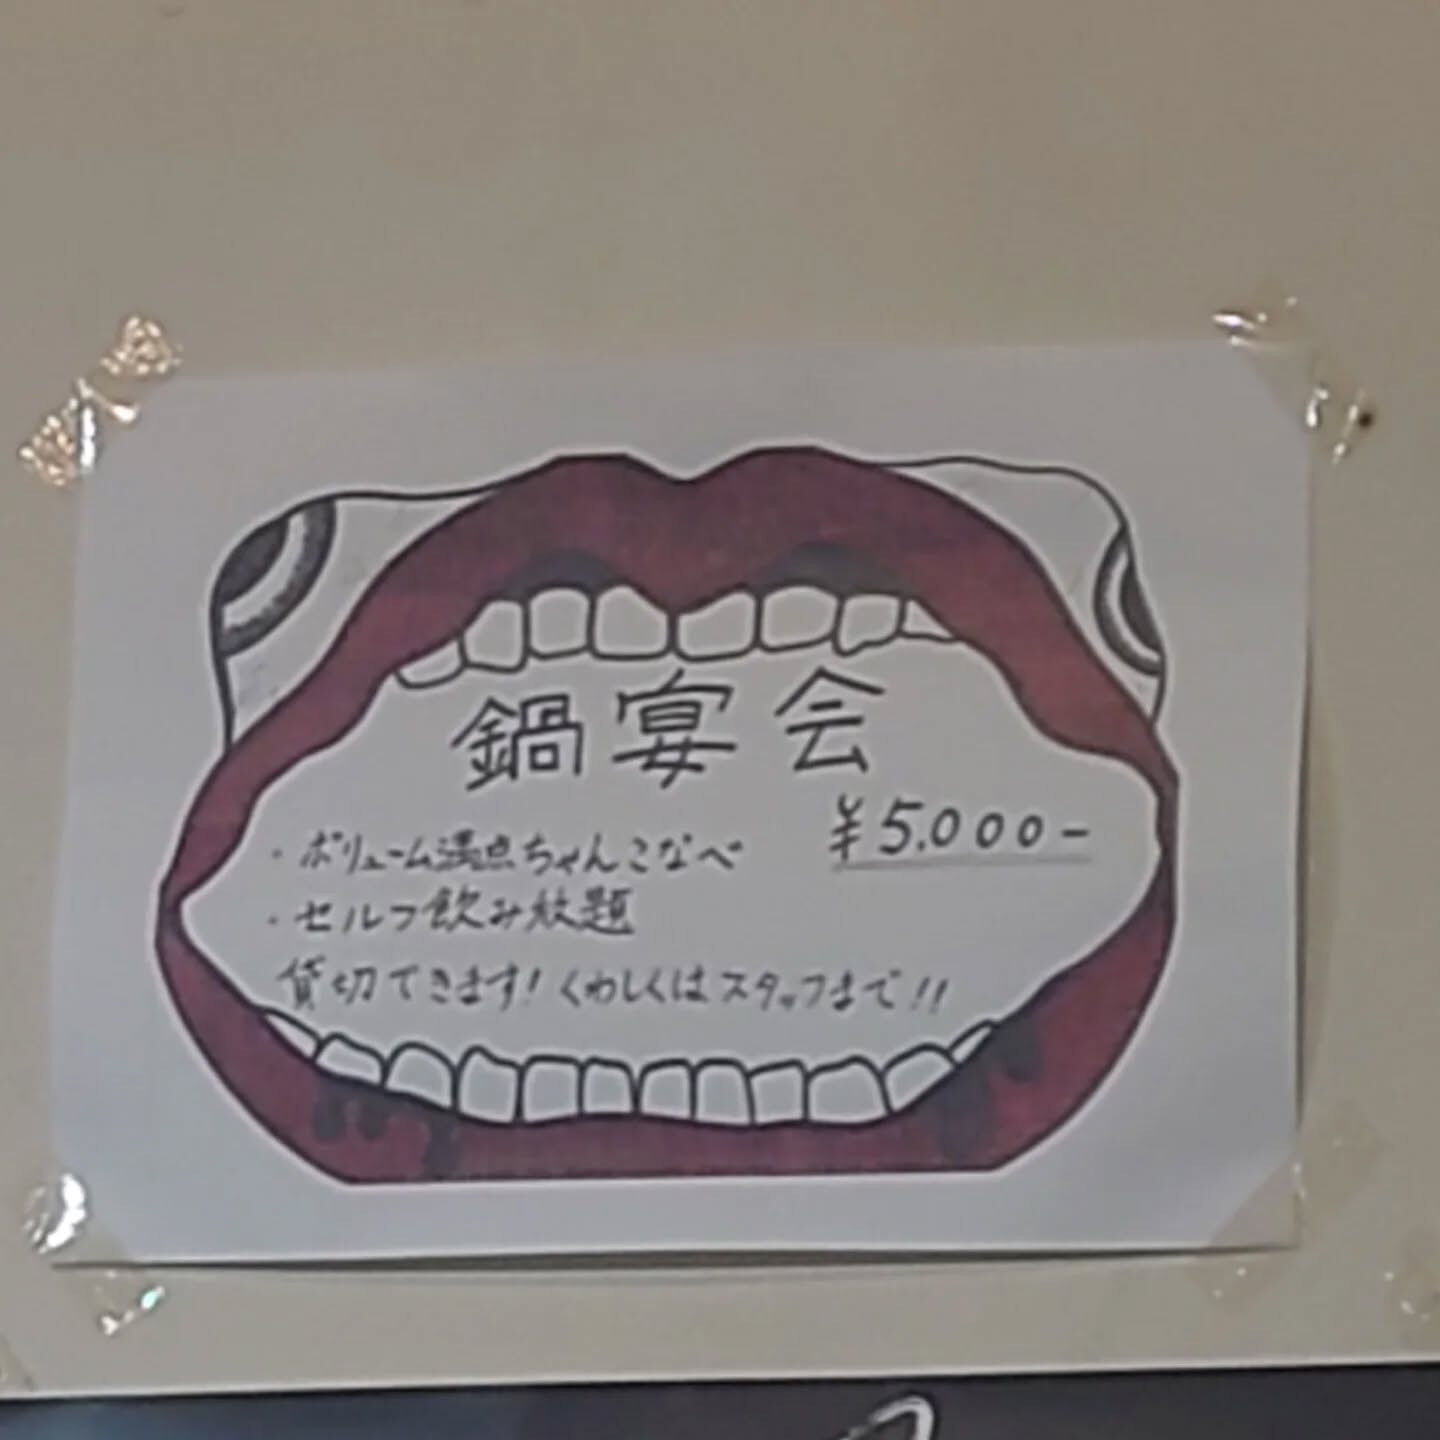 鍋宴会
¥5.000-
・ボリューム満点ちゃんこなべ
・セルフ飲み放題
貸切できます!くわしくはスタッフまで!!